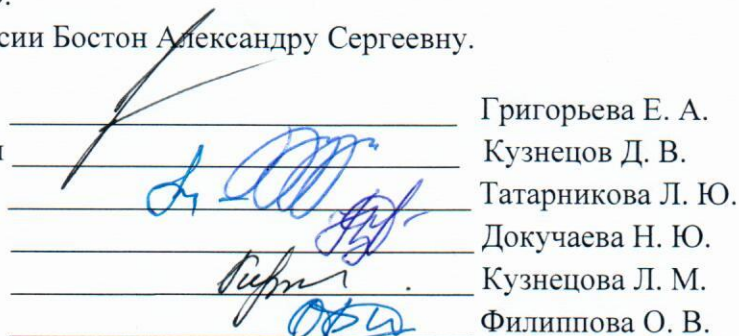 сии Бостон Александру Сергеевну.
Григорьева Е. А.
Кузнецов Д. В.
Татарникова Л. Ю.
Докучаева Н. Ю.
Кузнецова Л. М.
Филиппова О. В.